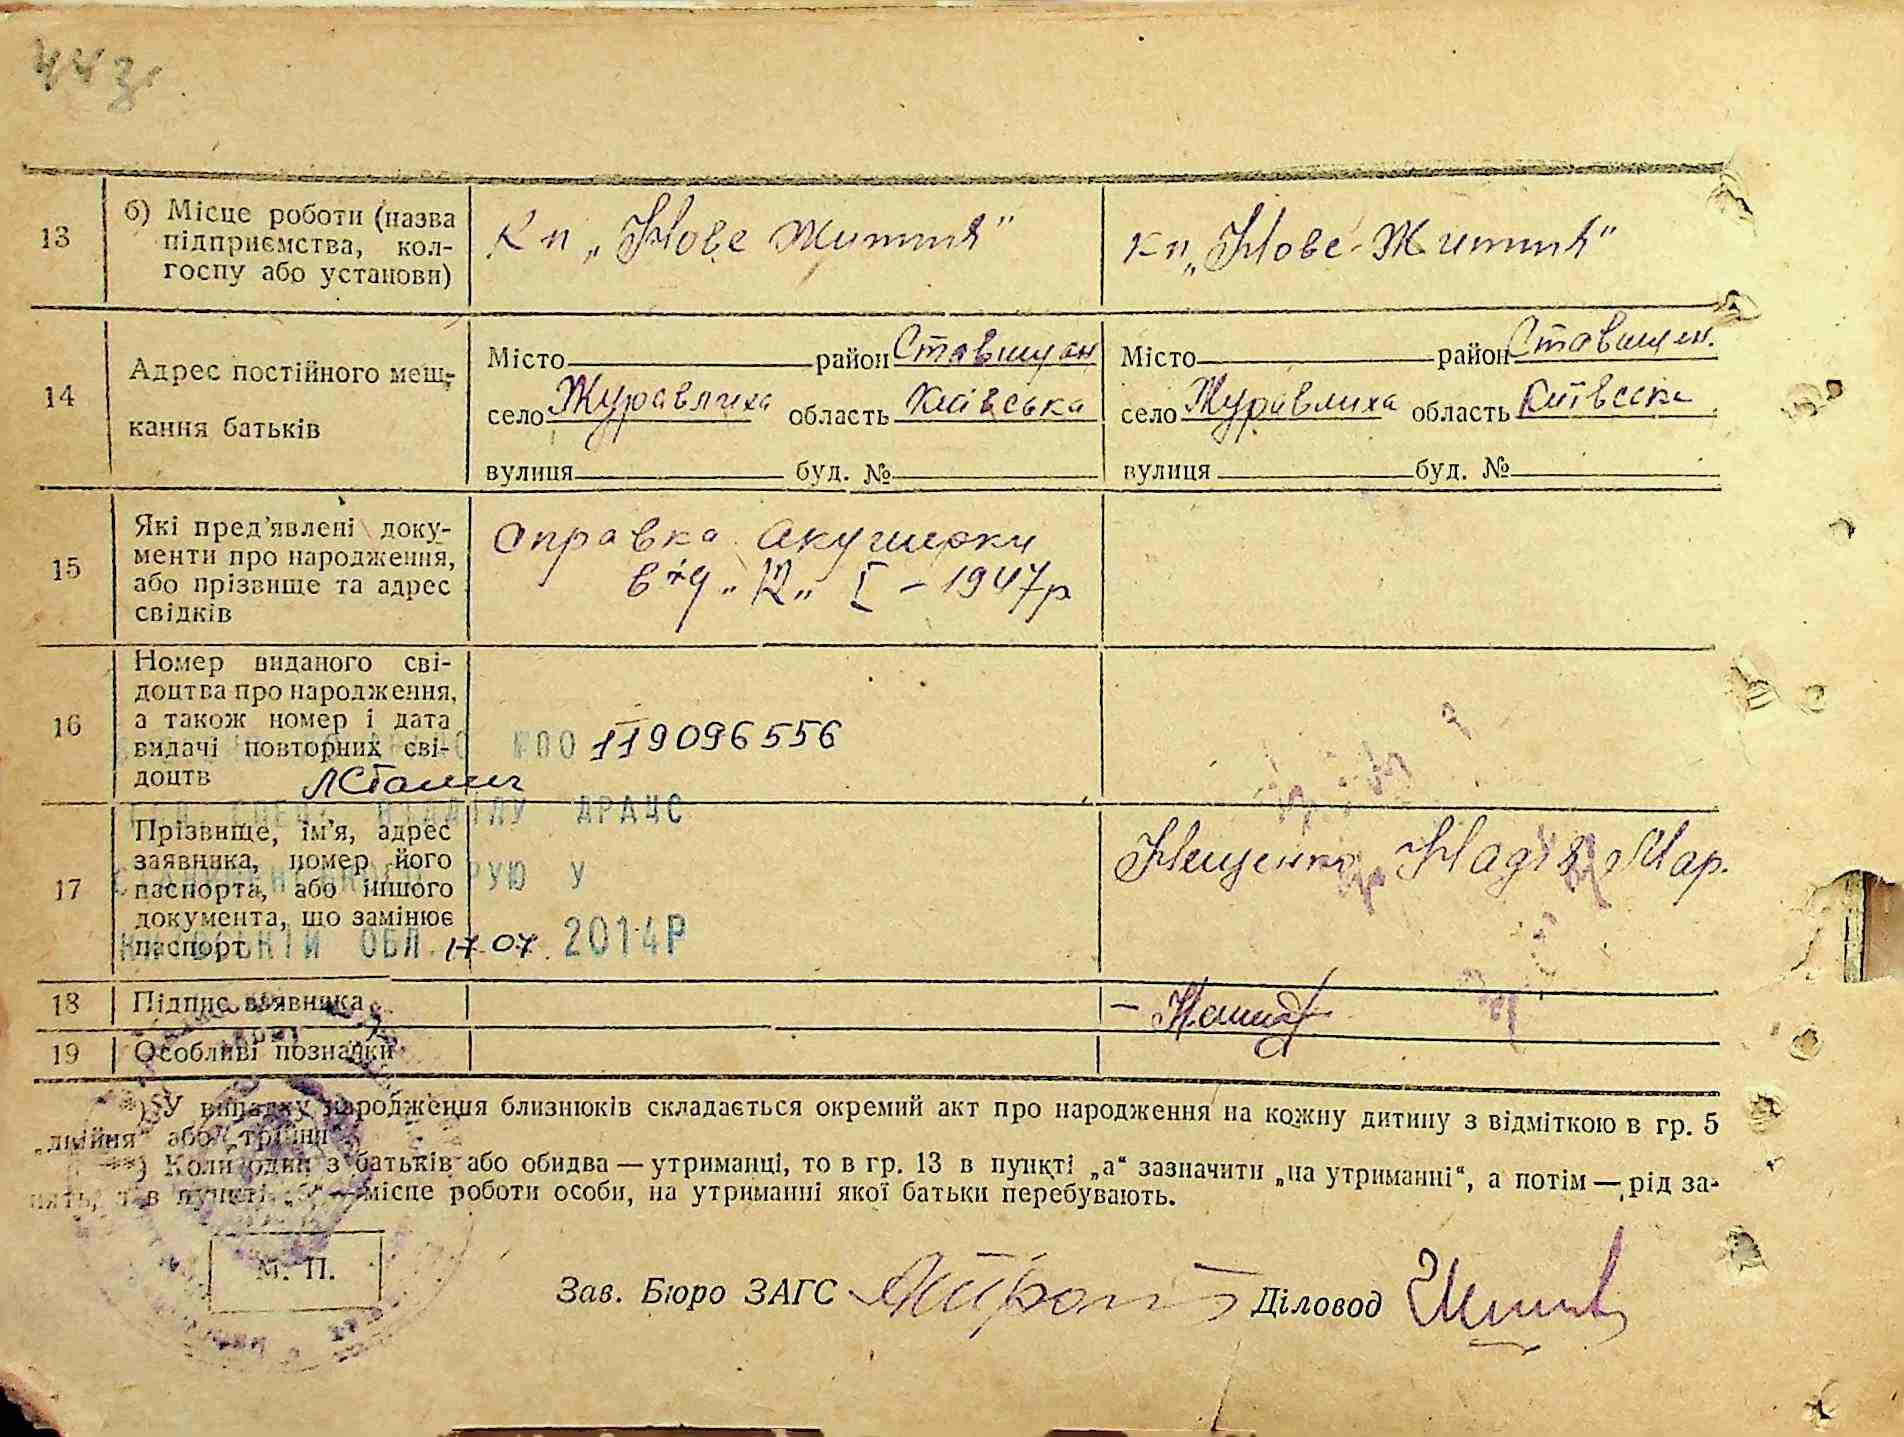 443
13
б) Місце роботи (назва
підприємства, кол-
госпу або установи)
Кп „Нове Життя"
кп „Нове Життя"
14
Адрес постійного меш-
кання батьків
Місто район Ставищан
село Журавлиха область Київська
вулиця буд. №
Місто район Ставищен.
село Журавлиха область Київська
вулиця буд. №
15
Які пред'явлені доку-
менти про народження,
або прізвище та адрес
свідків
Справка акушерки
від „12„ I – 1947р
16
Номер виданого сві-
доцтва про народження,
а також номер і дата
видачі повторних сві-
доцтв
119096556
ВІДДІЛУ ДРАЦС
РУЮ У
ОБЛ. 17.07. 2014Р
17
Прізвище, ім'я, адрес
заявника, номер його
паспорта, або іншого
документа, що замінює
паспорт
Нещенко Надія Мар.
18
Підпис заявника
19
Особливі познаки
*) У випадку народження близнюків складається окремий акт про народження на кожну дитину з відміткою в гр. 5
„двійня" або „трійня"
**) Коли один з батьків або обидва — утриманці, то в гр. 13 в пункті „а" зазначити „на утриманні", а потім — рід за-
нять, а в пункті „б" — місце роботи особи, на утриманні якої батьки перебувають.
М. П.
Зав. Бюро ЗАГС
Діловод